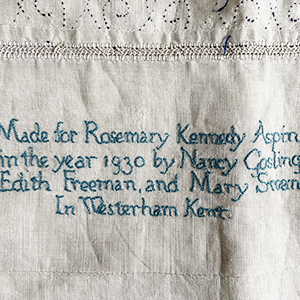 Made for Rosemary Kennedy
in the year 1930 by Nancy Gosling
Edith Freeman, and Mary
In Westerham Kent.